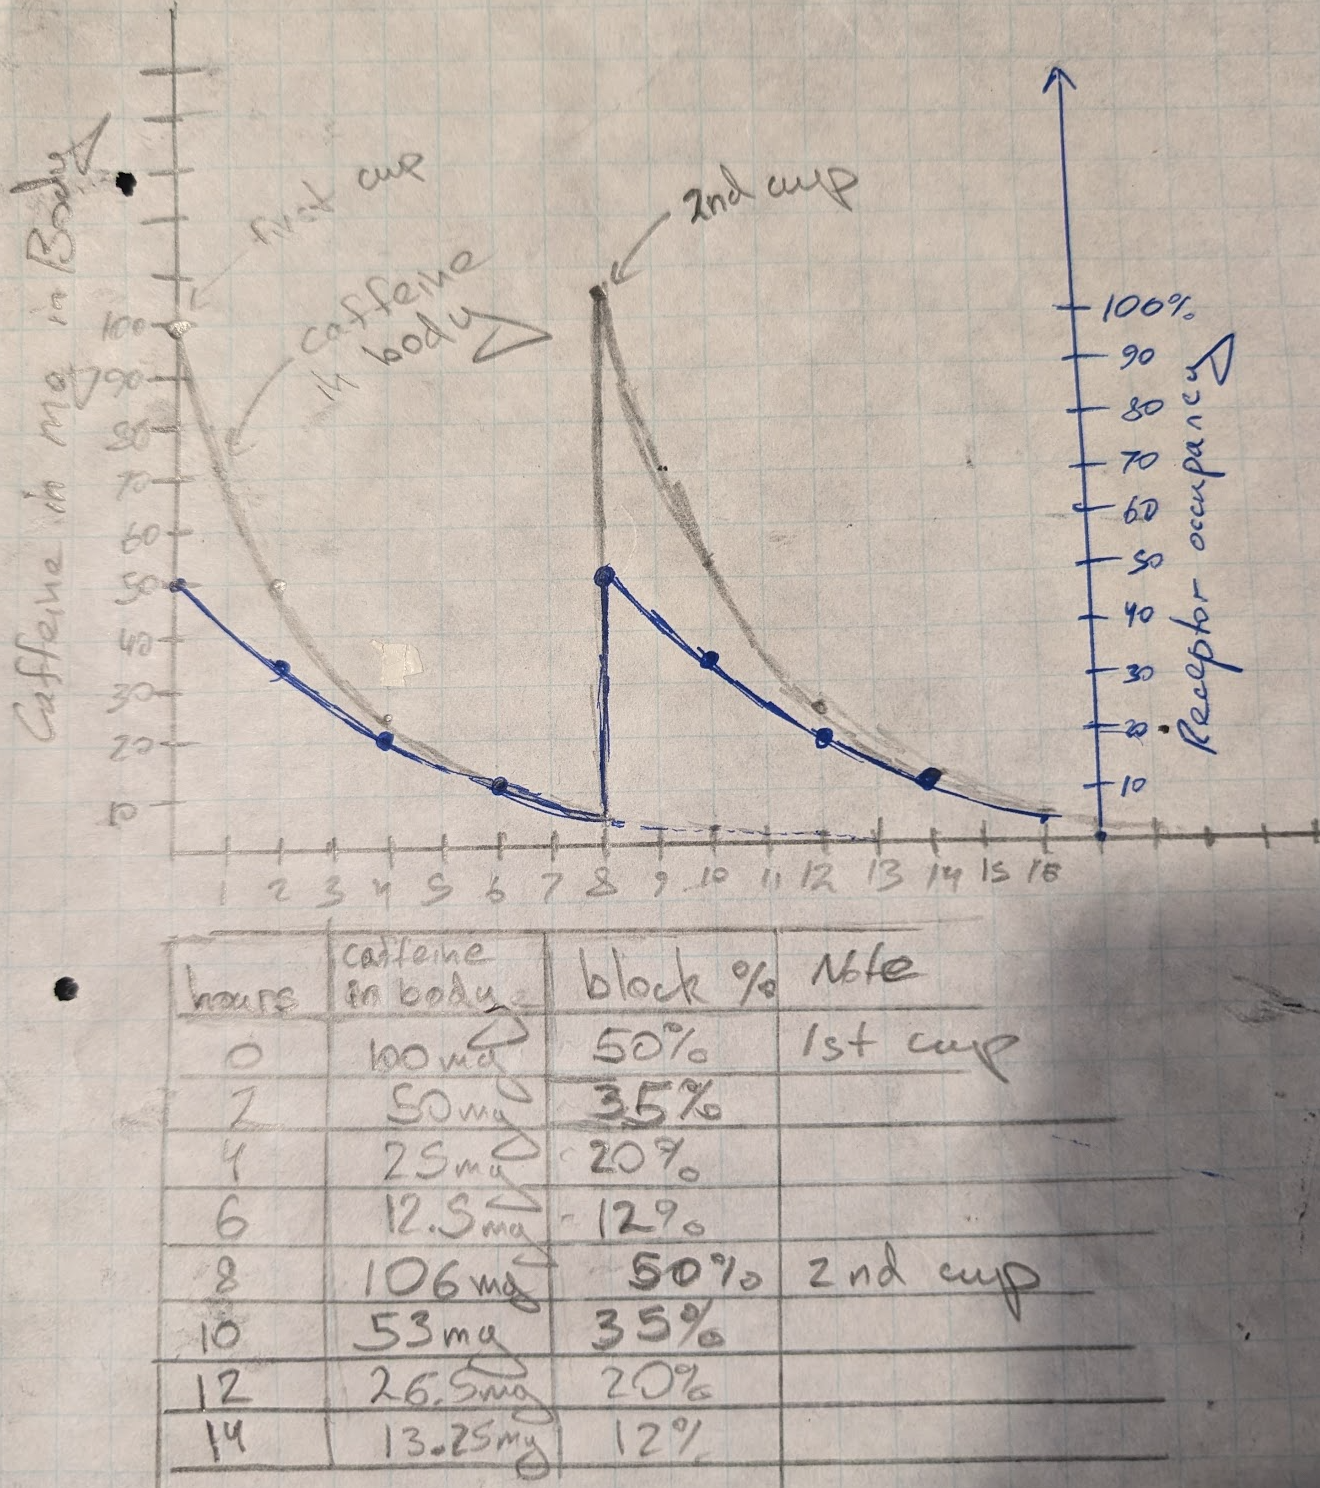 Caffeine in mg in Body
first cup
caffeine
in body
2nd cup
100
90
80
70
60
50
40
30
20
10
100%
90
80
70
60
50
40
30
20
10
Receptor occupancy
1 2 3 4 5 6 7 8 9 10 11 12 13 14 15 16
hours caffeine in body block % Note
0 100mg 50% 1st cup
2 50mg 35%
4 25mg 20%
6 12.5mg 12%
8 106mg 50% 2nd cup
10 53mg 35%
12 26.5mg 20%
14 13.25mg 12%